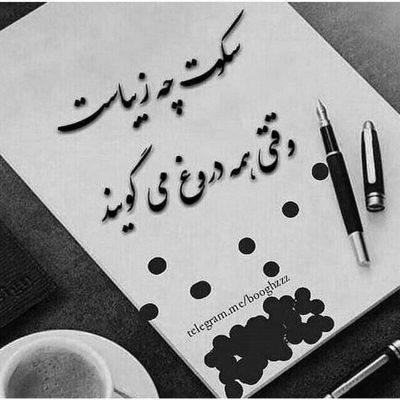 سکوت چه زیباست
وقتی همه دروغ می گویند
telegram.me/booghzzz